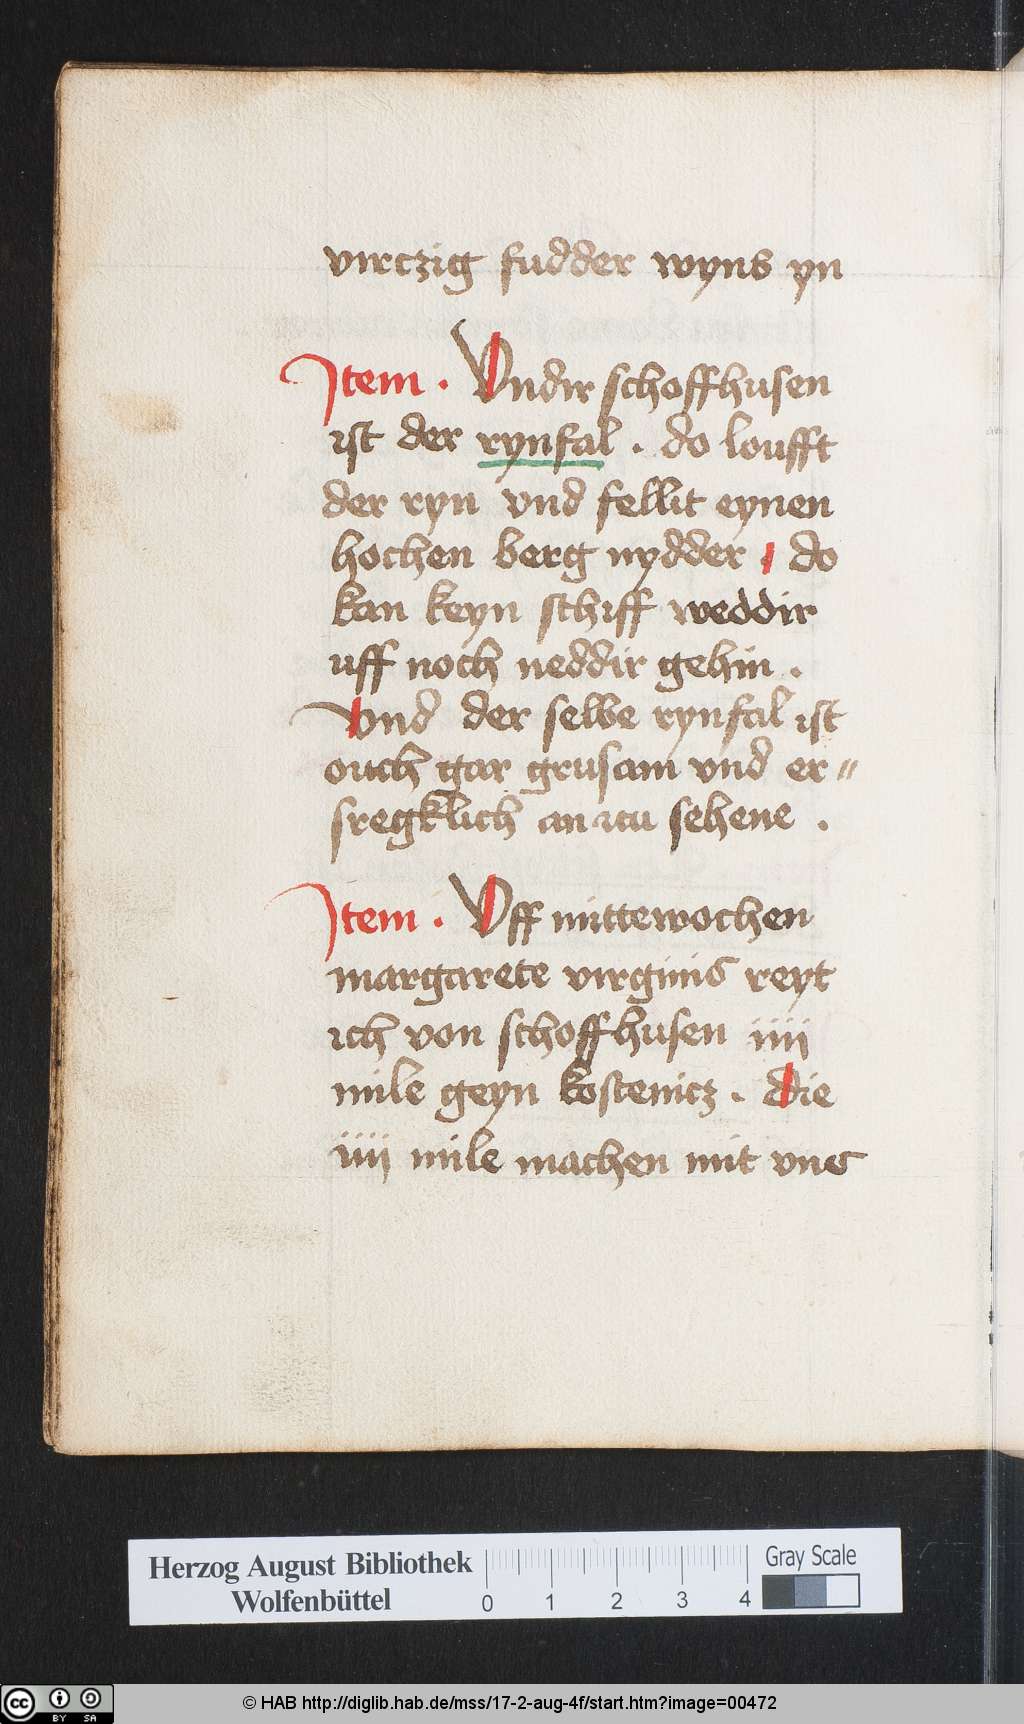 virczig fudder wyns yn
Item . Vndir schoffhusen
ist der rynfal . do loufft
der ryn vnd fellit eynen
hochen berg nydder . do
kan keyn schiff weddir
uff noch neddir gehin .
Vnd der selbe rynfal ist
ouch gar grusam vnd er=
sregklich an zcu sehene .
Item . Vff mittewochen
margarete virginis reyt
ich von schoffhusen iiii
mile geyn kostenicz . die
iiii mile machen mit vns
Herzog August Bibliothek
Wolfenbüttel
0 1 2 3 4
Gray Scale
cc BY SA
© HAB http://diglib.hab.de/mss/17-2-aug-4f/start.htm?image=00472